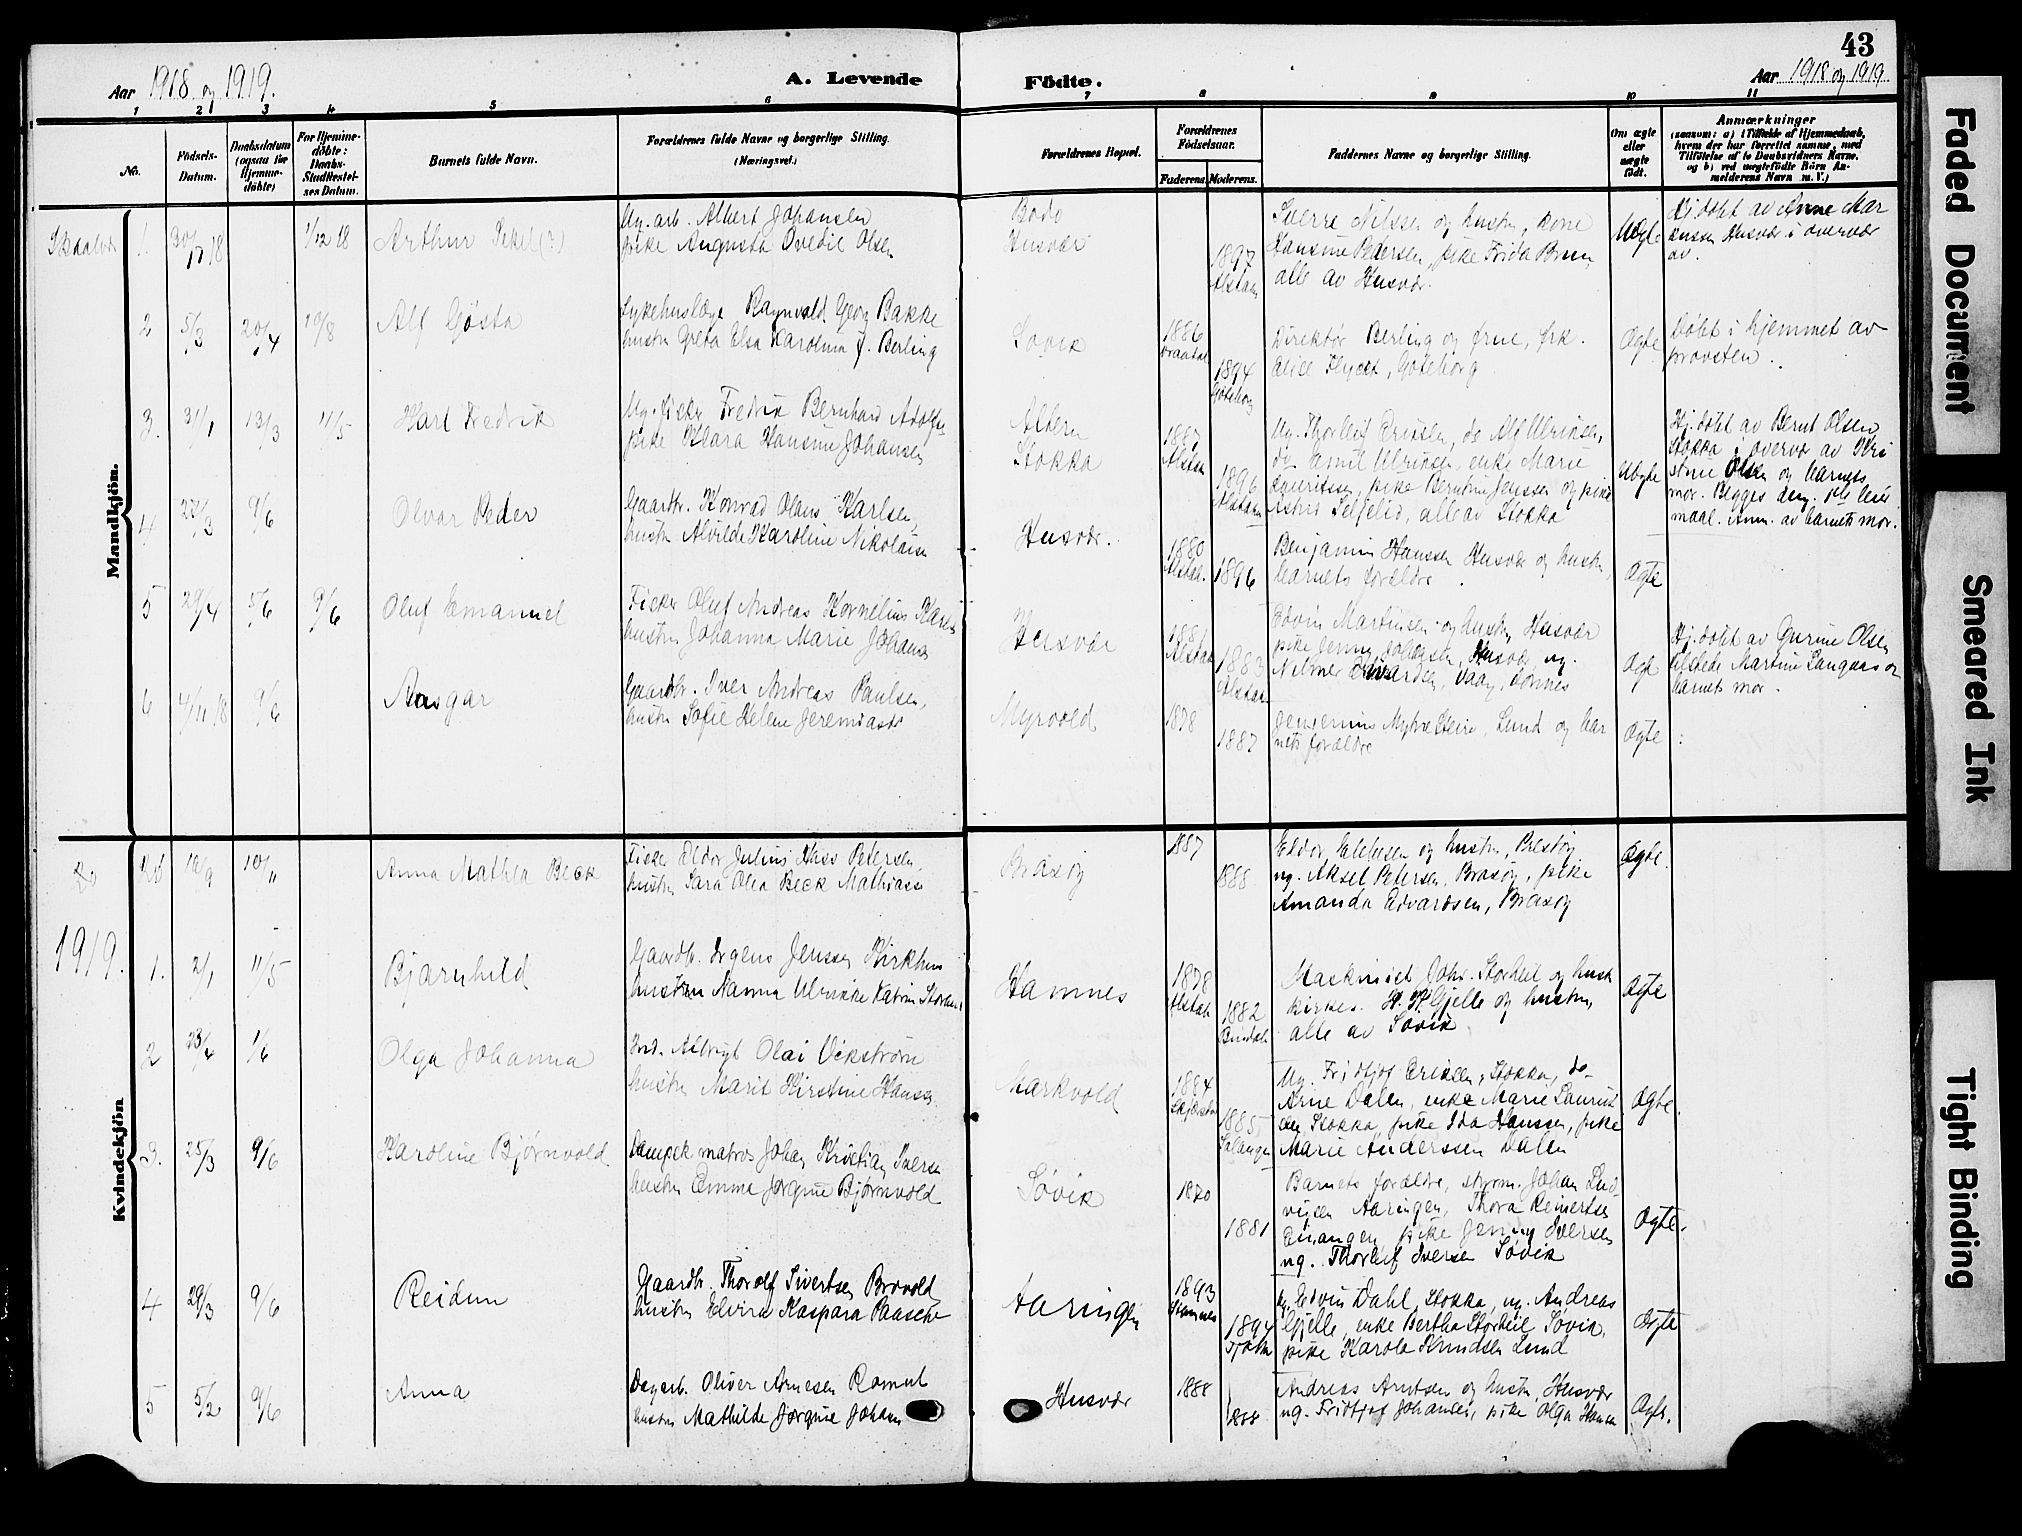 43
Aar 1918 og 1919.
A. Levende
Födte.
Aar 1918 og 1919
1 2 3 4 5 6 7 8 9 10 11
No.
Födsels-
Datum.
Daabsdatum
(ogsaa for
Hjemme-
döbte)
For Hjemme-
döbte:
Daabs-
Stadfæstel-
ses Datum.
Barnets fulde Navn.
Forældrenes fulde Navne og borgerlige Stilling.
(Næringsvei.)
Forældrenes Bopæl.
Forældrenes
Födselsaar.
Faderens.
Moderens.
Faddernes Navne og borgerlige Stilling.
Om ægte
eller
uægte
födt.
Anmærkninger
(saasom: a) i Tilfælde af Hjemmedaab,
hvem der har forrettet samme, med
Tilföielse af to Daabsvidners Navne,
og b) ved uægtefödte Börn An-
melderens Navn m. V.)
Mandkjön.
1. 30/11 18 1/12 18 Arthur
Ug. arb. Albert Johansen
pike Augusta Ovedie Olsen
Bodø
Husvær
1897
Sverre Nilssen og hustru, kone
Hansine Pedersen, pike Frida Bruun,
alle av Husvær.
Uægte
Hj.døbt av Anne Mar
kussen Husvær i overvær
av.
2 5/3 20/4 10/8 Alf Gøsta
Sykehuslæge Ragnvald Georg Bakke
hustru Greta Elsa Karolina f. Berling
Søvik
1886
1894
Gøteborg
Direktør Berling og frue, frk.
Alice Flyckt, Gøteborg
Ægte
Døbt i hjemmet av
provsten.
3. 31/1 13/3 11/5 Karl Fredrik
Ug. fisker Fredrik Bernhard Adolfsen
pike Klara Hansine Johansen
Altern
Stokka
1887
Alstah
1896
Alstah
Ug. Thorleif Eriksen, do Alf Ulriksen,
do Emil Ulriksen, enke Marie
Lauritssen, pike Berntine Jenssen og pike
Astrid Selfelid, alle av Stokka
Uægte
Hj.døbt av Bernt Olsen
Stokka i overvær av Kri
stine Olsen og barnets
mor. Begges
maal. Anm. av barnets mor.
4 9/6 Olvar Peder
Gaardbr. Konrad Olaus Karlsen,
hustru Alvilde Karoline Nikolaisen
Husvær.
1880
Alstah.
1896
Benjamin Hanssen Husvær og hustru,
barnets forældre.
Ægte
5 29/4 5/6 9/6 Oluf Emanuel
Fisker Oluf Andreas Kornelius Karlsen
hustru Johanna Marie Johansen
Husvær
1881
Alstah
1883
Alstah
Edvin Martinsen og hustru, Husvær
pike Jenny Johansen, Husvær, ug.
Nilmer Edvardsen, Vaag, Dønnes
Ægte
Hj.døbt av Gurine Olsen
tilstede Martine Langaas og
barnets mor.
6 4/11 18 9/6 Ansgar
Gaardbr. Iver Andreas Paulsen,
hustru Sofie Helene Jeremiasd
Myrvold
1878
1887
Lund og bar
nets forældre
Ægte
Kvindekjön
16/9 10/11 Anna Mathea Beck
Fisker Eldor Julius Hass Petersen
hustru Sara Olea Beck Mathiasen
Brasøy
1887
1888
Eldor og hustru, Prestøy
ug. Aksel Petersen, Brasøy, pike
Amanda Edvardsen, Brasøy
Ægte.
1919.
1. 2/1 11/5 Bjarnhild
Gaardbr. Jørgens Jenssen Kirkhus
hustru Nanna Ulrikke Katrine
Hamnes
1878
Alstah
1882
Bindal
Maskinist Johs. Storheil og hust
kirkes. H. P. Gjelle og hustru,
alle av Søvik
Ægte
2 23/4 1/6 Olga Johanna
Ind. Albrigt Olai Vikstrøm
hustru Marit Kirstine Hansen
Markvold
1884
1885
Salangen
Ug. Fridtjof Eriksen, Stokka, do
Arne Dalen, enke Marie Laurit
sen Stokka, pike Ida Hanssen, pike
Marie Anderssen Dalen
Ægte.
3. 25/3 9/6 Karoline Bjørnvold
Dampsk.matros Johan Kristian Iversen
hustru Emma Jørgine Bjørnvold
Søvik
1870
1881
Barnets forældre, styrm. Johan Lud-
vigsen Aaringen, Thora Reinertsen
pike Jenny Iversen
ug. Thorleif Iversen Søvik
Ægte.
4 29/3 9/6 Reidun
Gaardbr. Thorolf Sivertsen Brovold
hustru Elvira Kaspara Paasche
Aaringen
1893
Hamnes
1894
Tjøtta
Ug. Edvin Dahl, Stokka, ug. Andreas
Gjelle, enke Bertha Storheil Søvik,
pike Karola Knudsen Lund
Ægte
5 5/2 9/6 Anna
Dagarb. Oliver Arnesen
hustru Mathilde Jørgine Johans
Husvær
1888
1888
Andreas Arntsen og hustru, Husvær
ug. Fridtjof Johansen, pike Olga Hansen
Ægte.
Faded Document
Smeared Ink
Tight Binding